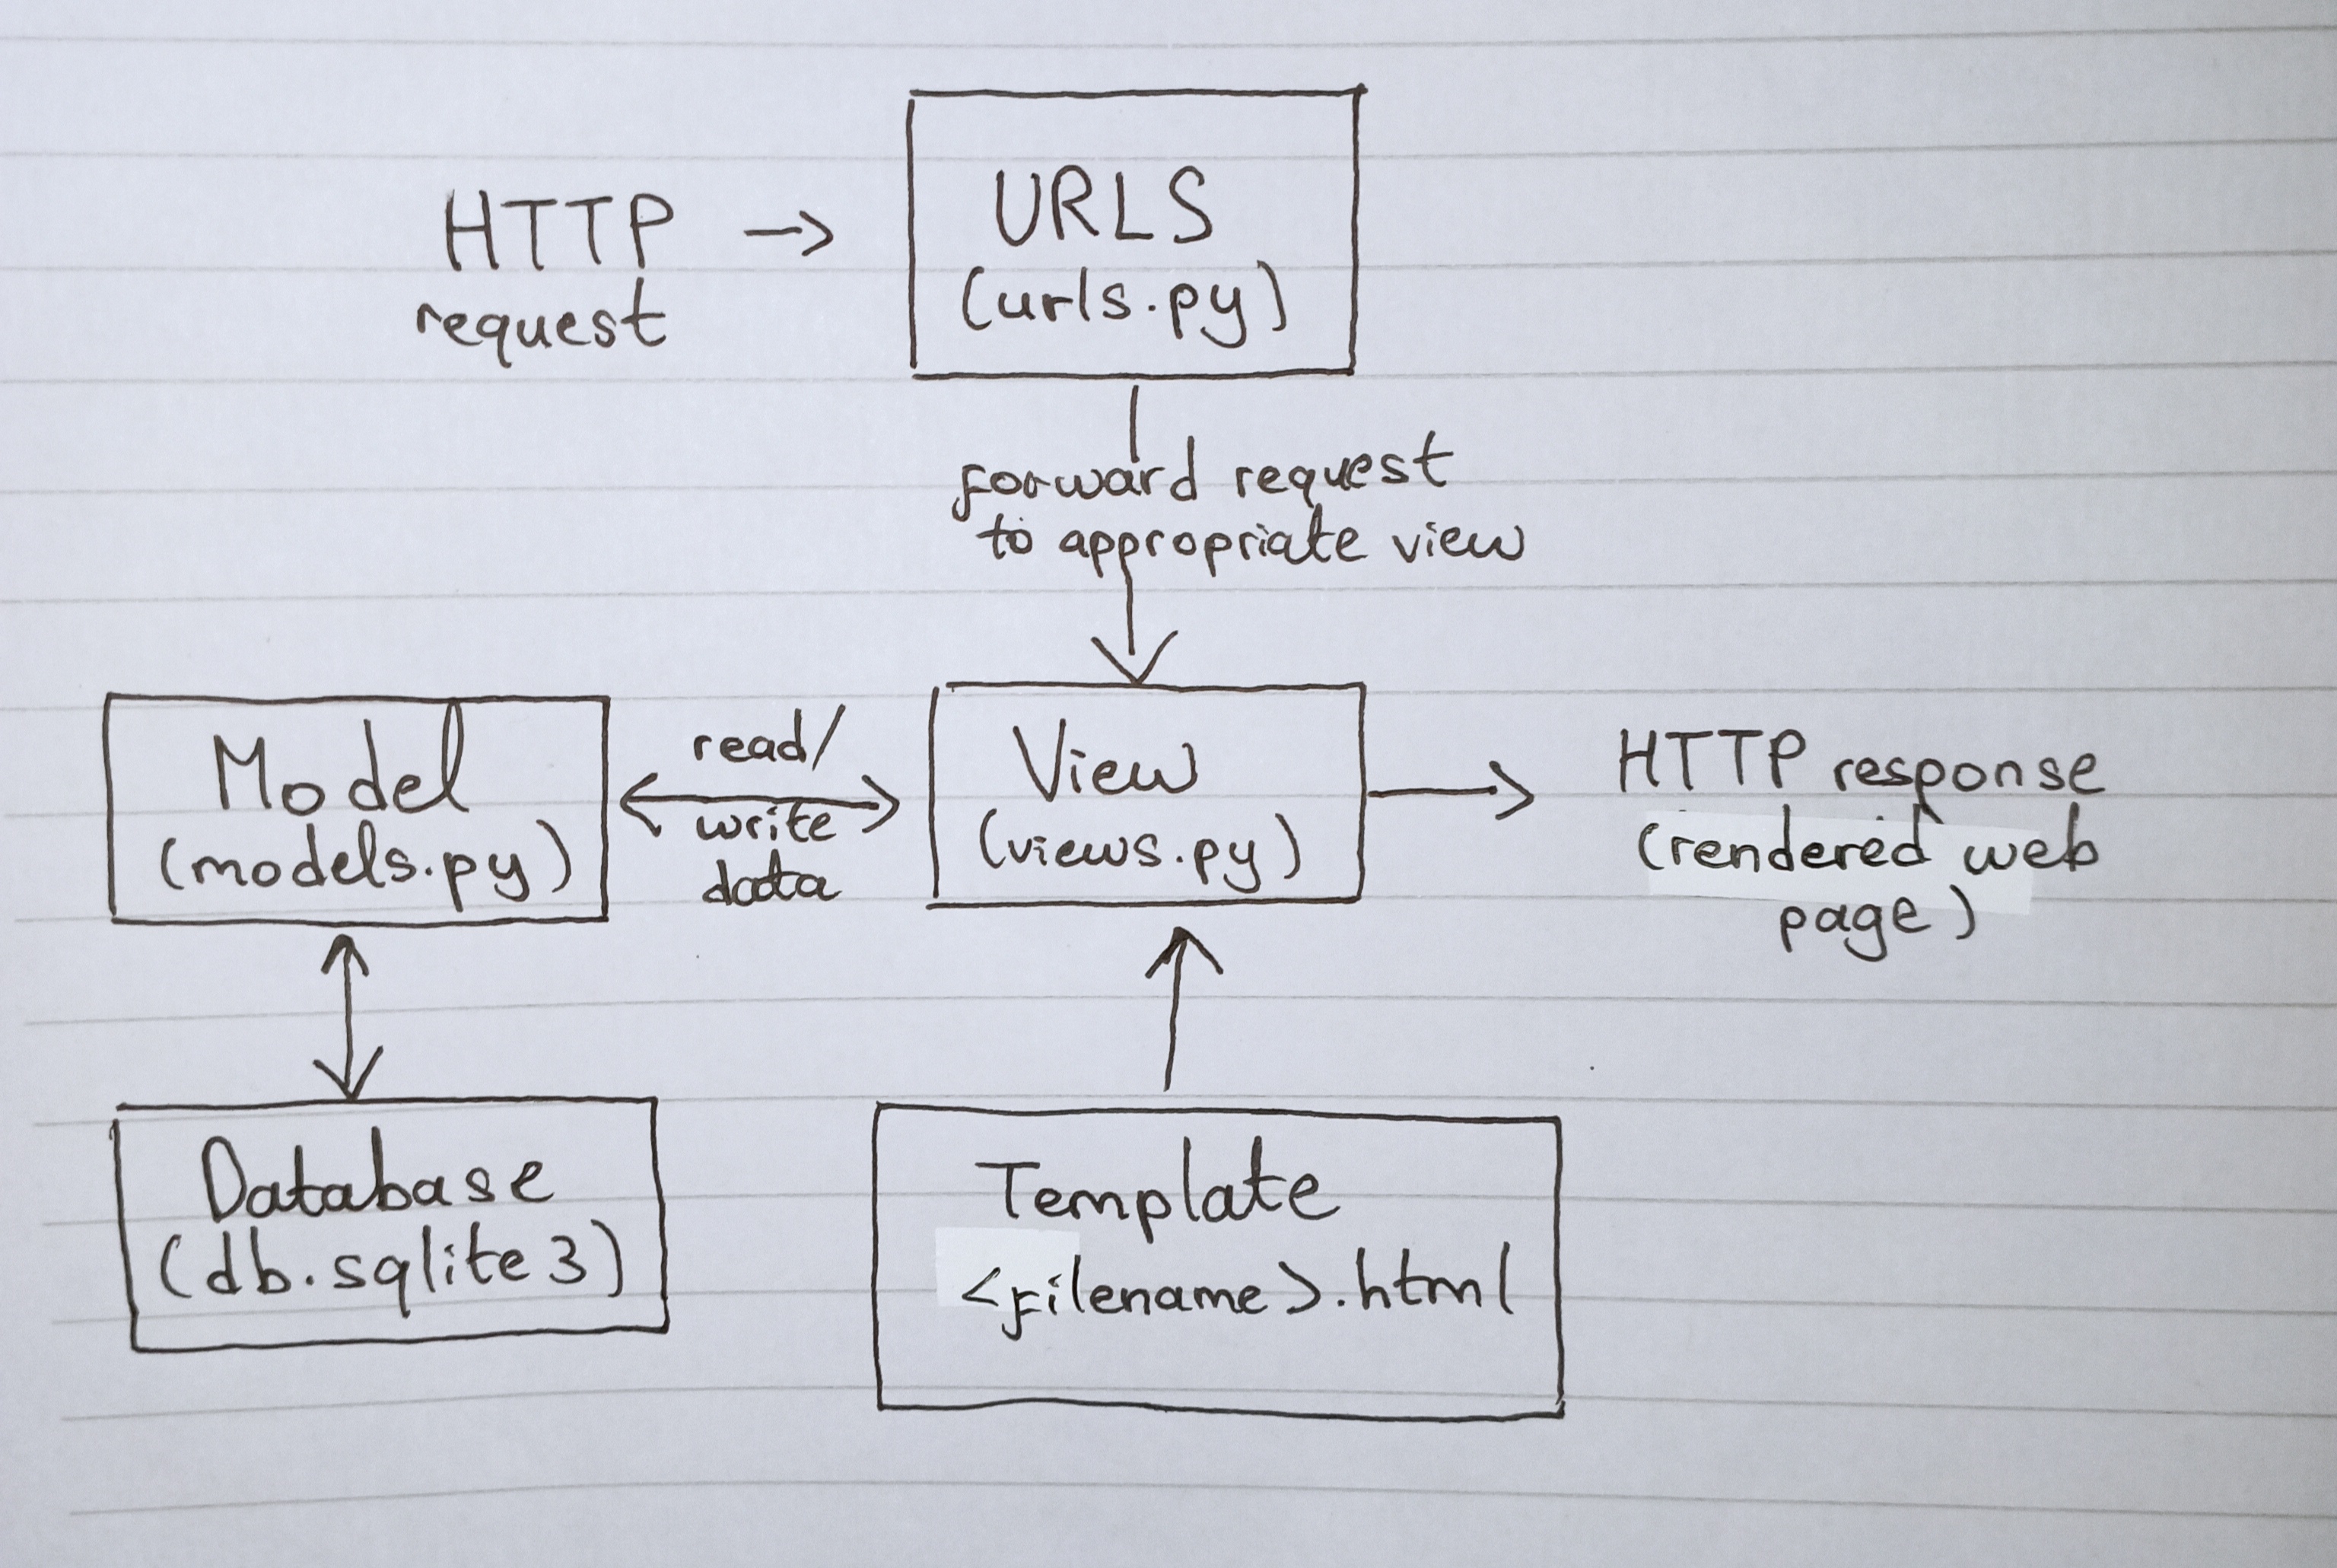 HTTP
request
URLS
(urls.py)
forward request
to appropriate view
Model
(models.py)
read/
write
data
View
(views.py)
HTTP response
(rendered web
page)
Database
(db.sqlite3)
Template
<filename>.html